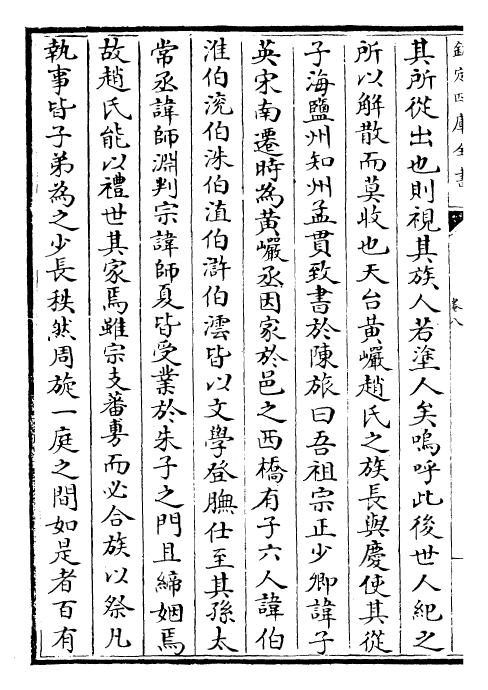 欽定四庫全書
卷八
其所從出也則視其族人若塗人矣嗚呼此後世人紀之
所以解散而莫收也天台黃巖趙氏之族長與慶使其從
子海鹽州知州孟貫致書於陳旅曰吾祖宗正少卿諱子
英宋南遷時為黃巖丞因家於邑之西橋有子六人諱伯
淮伯浣伯洙伯淔伯滸伯澐皆以文學登膴仕至其孫太
常丞諱師淵判宗諱師夏皆受業於朱子之門且締姻焉
故趙氏能以禮世其家焉雖宗支蕃夥而必合族以祭凡
執事皆子弟為之少長秩然周旋一庭之間如是者百有